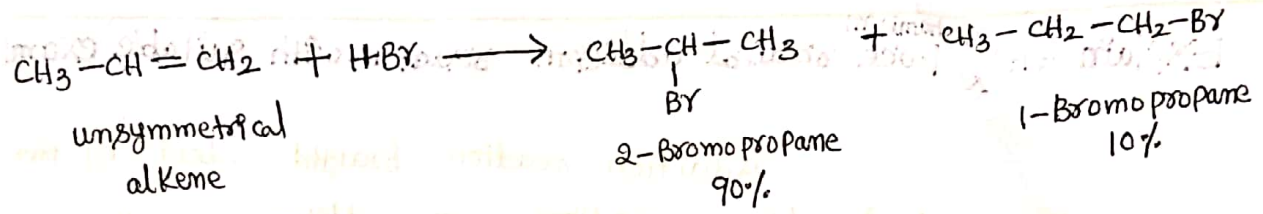 CH3-CH=CH2 + HBr → CH3-CH-CH3 + CH3-CH2-CH2-Br
Br
unsymmetrical
alkene
2-Bromopropane
90%
1-Bromopropane
10%